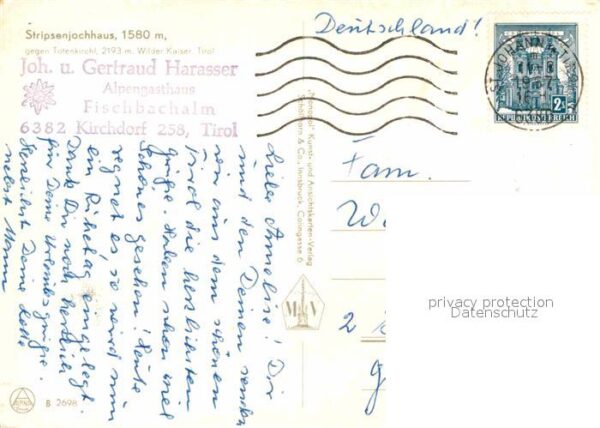 Stripsenjochhaus, 1580 m,
gegen Totenkirchl, 2193 m, Wilder Kaiser, Tirol
Joh. u. Gertraud Harasser
Alpengasthaus
Fischbachalm
6382 Kirchdorf 258, Tirol
Deutschland!
ST. JOHANN IN TIROL
2 S
REPUBLIK ÖSTERREICH
Liebe Annelise! Dir
und den Deinen senden
wir aus dem schönen
Tirol die herzlichsten
Grüße. Haben schon viel
Schönes gesehen! Heute
regnet es, so wird nun
ein Ruhetag eingelegt.
Dank Dir noch herzlich
für Deine Urlaubsgrüße.
Herzlichst Deine
nebst Mann
"Monopol" Kunst- und Ansichtskarten-Verlag
Schöllhorn & Co., Innsbruck, Colingasse 6
Fam.
W
2
G
M V
B 2698
privacy protection
Datenschutz